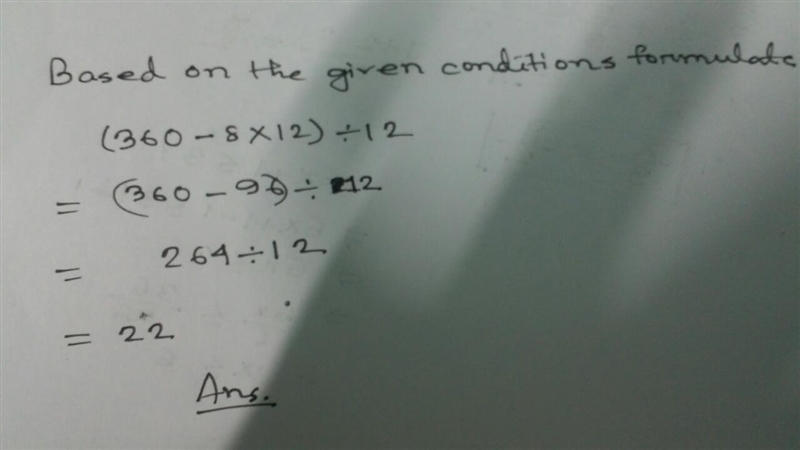 Based on the given conditions formulate
(360 - 8 × 12) ÷ 12
= (360 - 96) ÷ 12
= 264 ÷ 12
= 22
Ans.